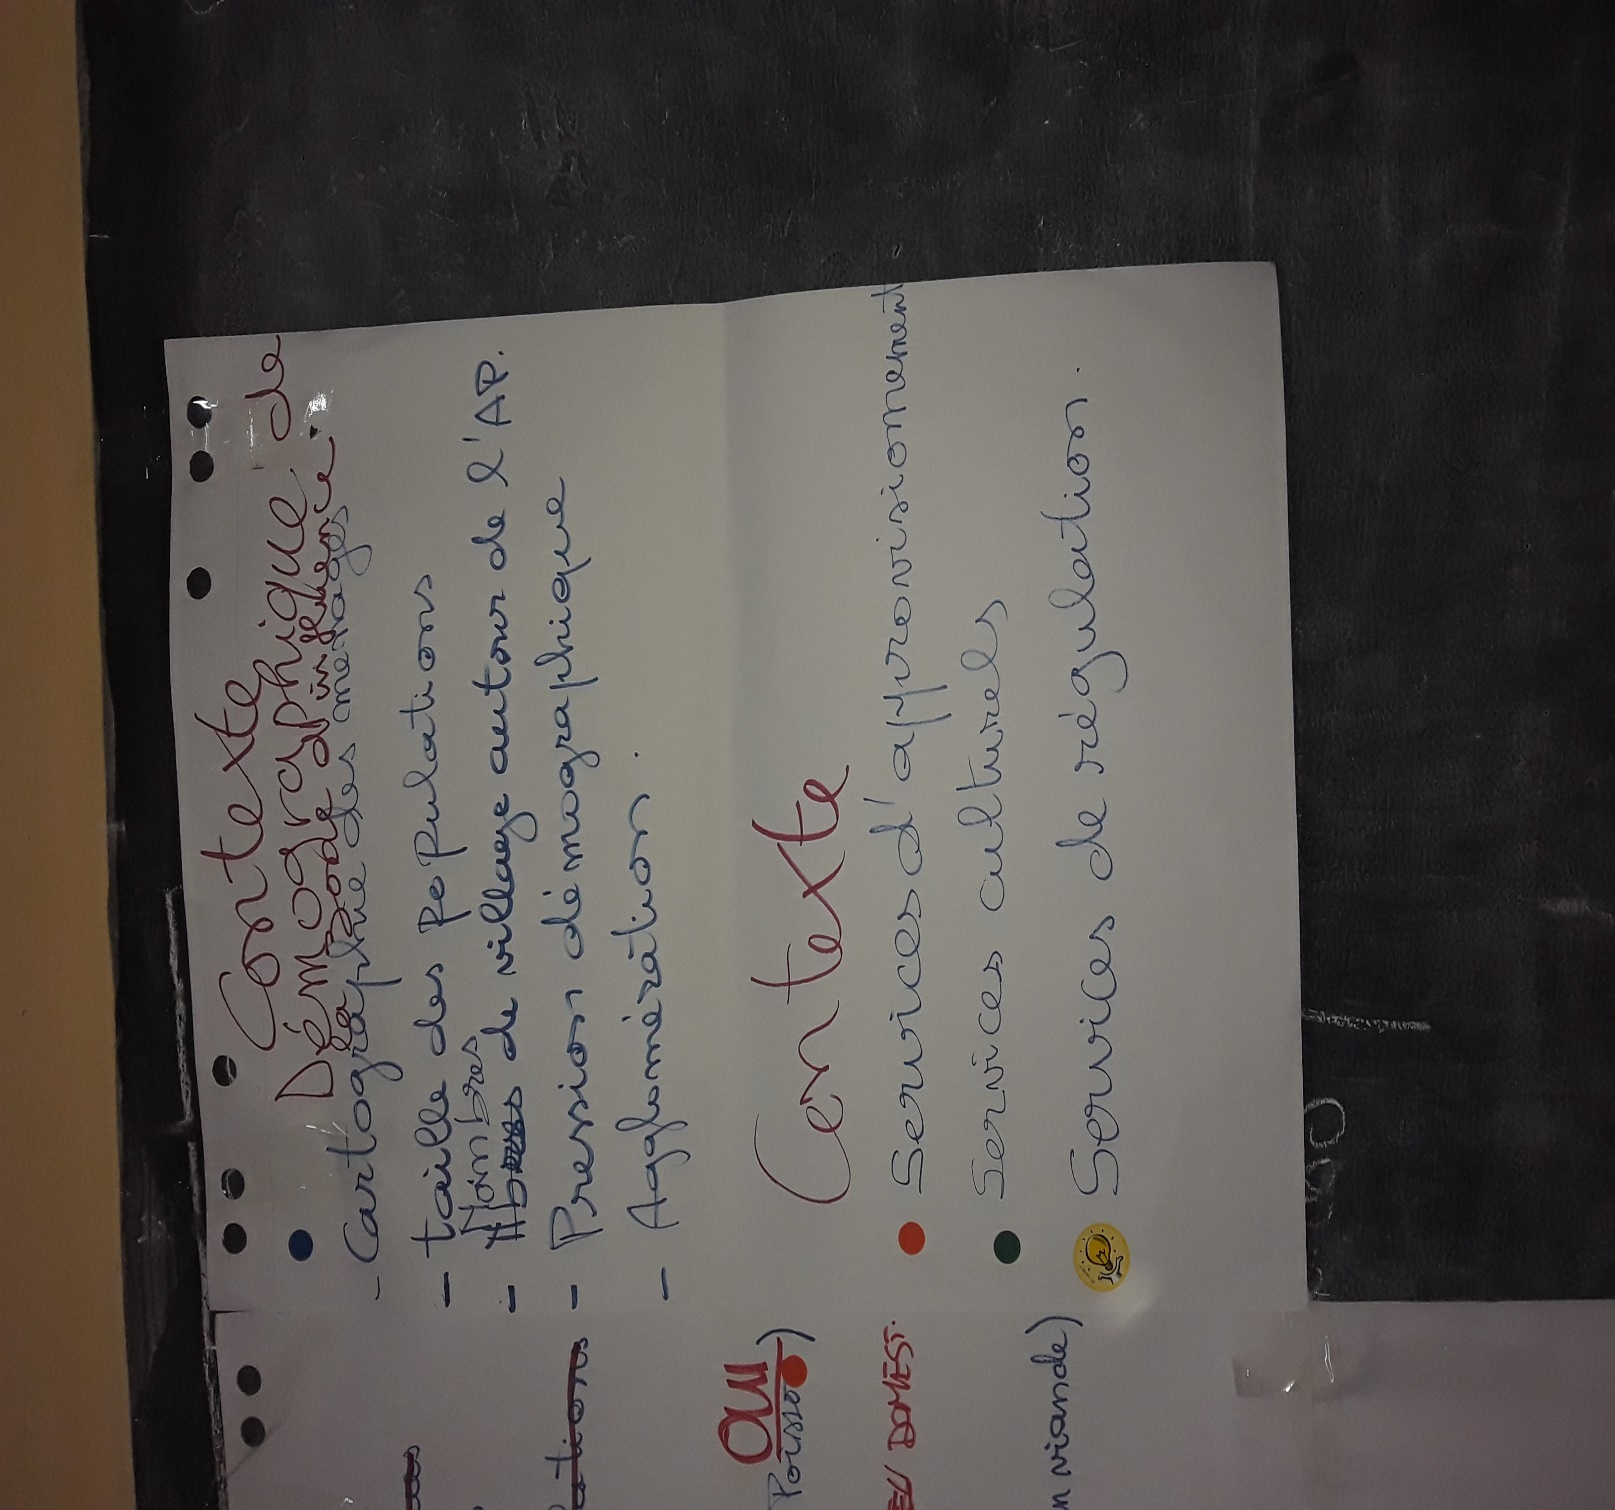 Contexte
Démographique de
la Zone d'influence.
- Cartographie des menages
- taille des populations
Nombres
- de village autour de l'AP.
- Pression démographique
- Agglomération.
Contexte
Services d'approvisionnement
Services culturels
Services de régulation.
OUI
Poisso )
EU DOMEST.
n viande)